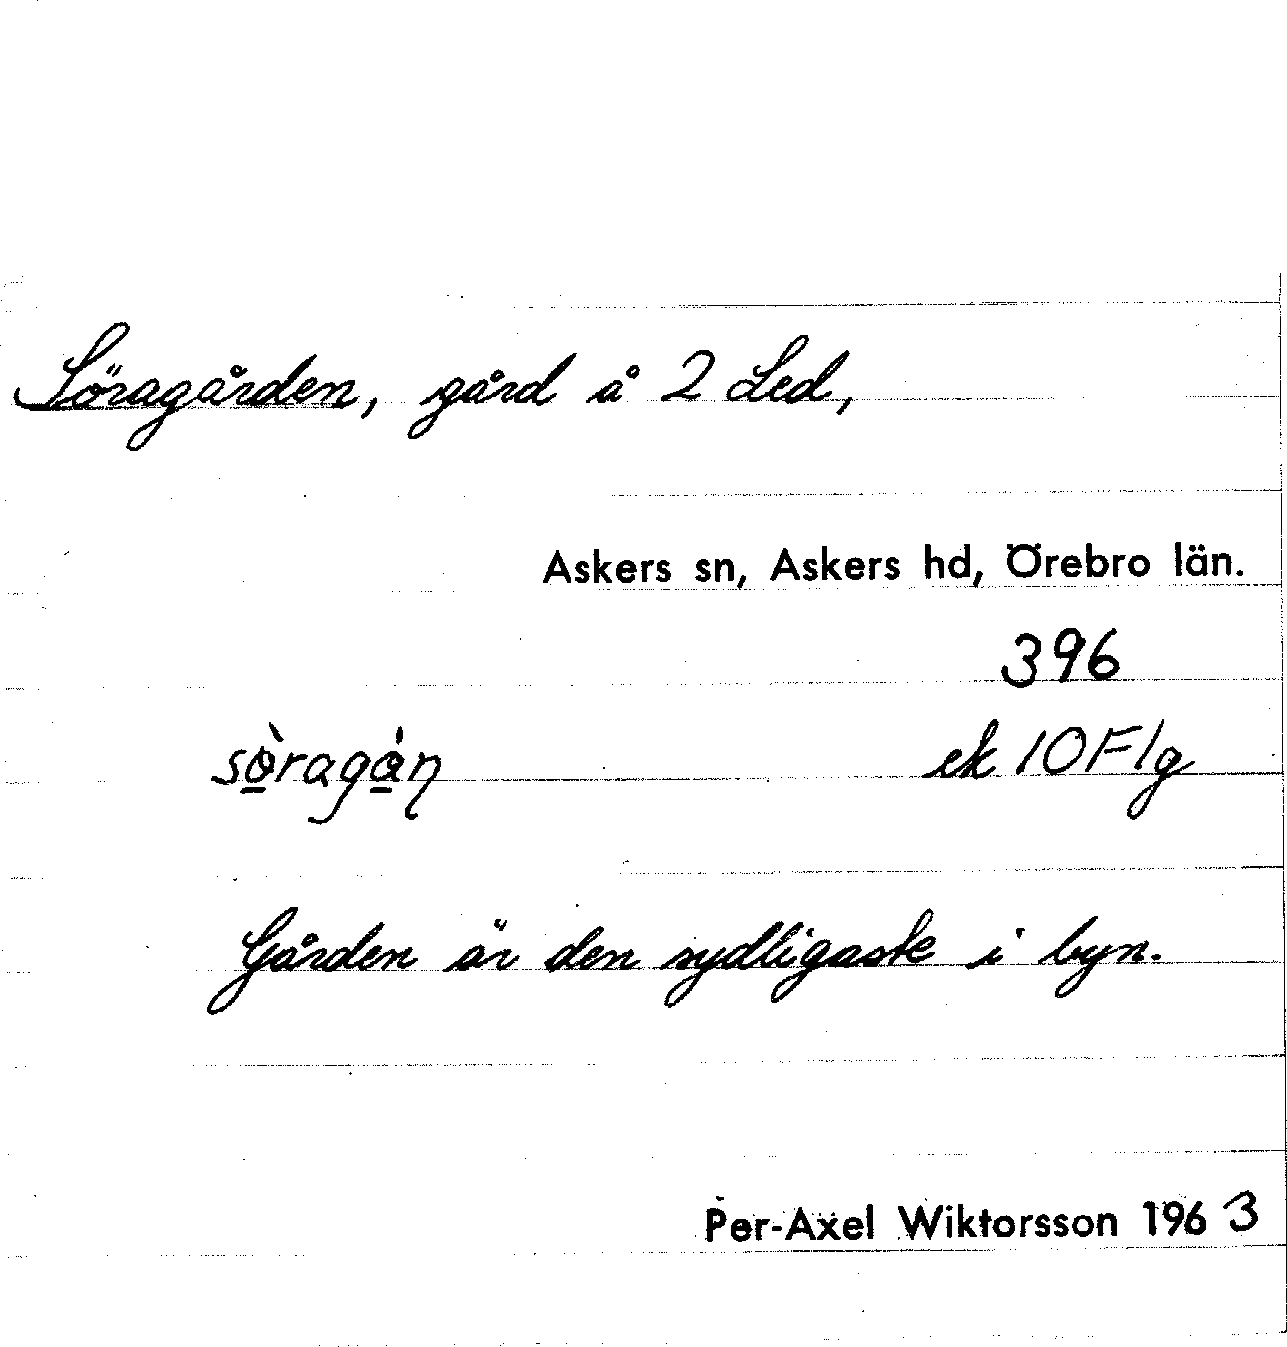 Söragården, gård å 2 Led,
Askers sn, Askers hd, Örebro län.
396
sö̀ragàn ek 10F1g
Gården är den sydligaste i byn.
Per-Axel Wiktorsson 1963